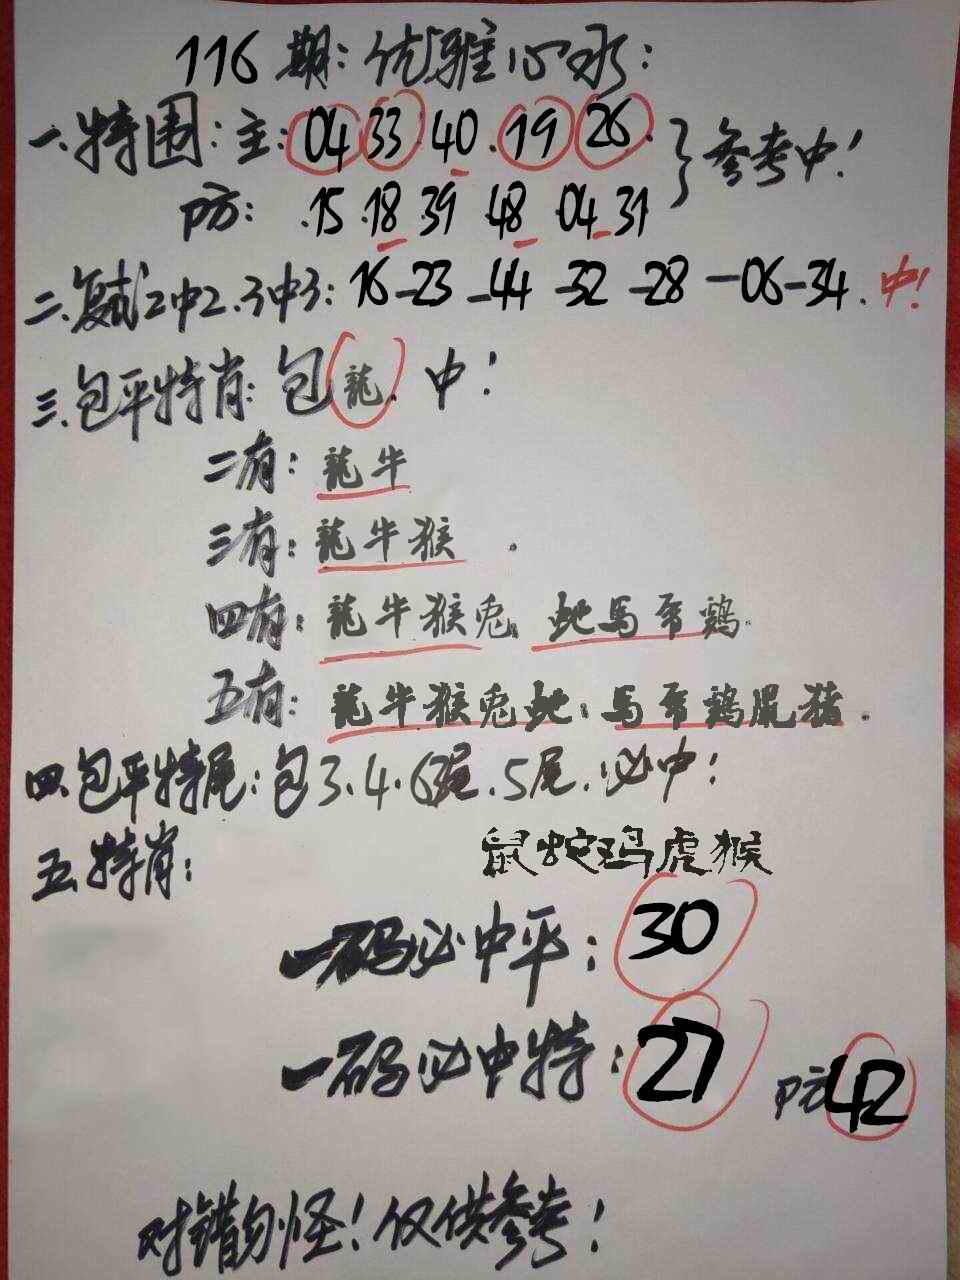 116期:优雅心水:
一.特围:主:04 33 40.19 26.
参考中!
防:.15.18.39 48 04 31
二.复试2中2.3中3:16-23-44-32-28-06-34.中!
三.包平特肖:包龍.中!
二有:龍牛
三有:龍牛猴.
四有:龍牛猴兎.蛇馬羊鶏.
五有:龍牛猴兎蛇.馬羊鶏鼠猪.
四.包平特尾:包3.4.6尾.5尾.必中!
五.特肖:
鼠蛇鸡虎猴
一码必中平:30
一码必中特:27 防42
对错勿怪!仅供参考!